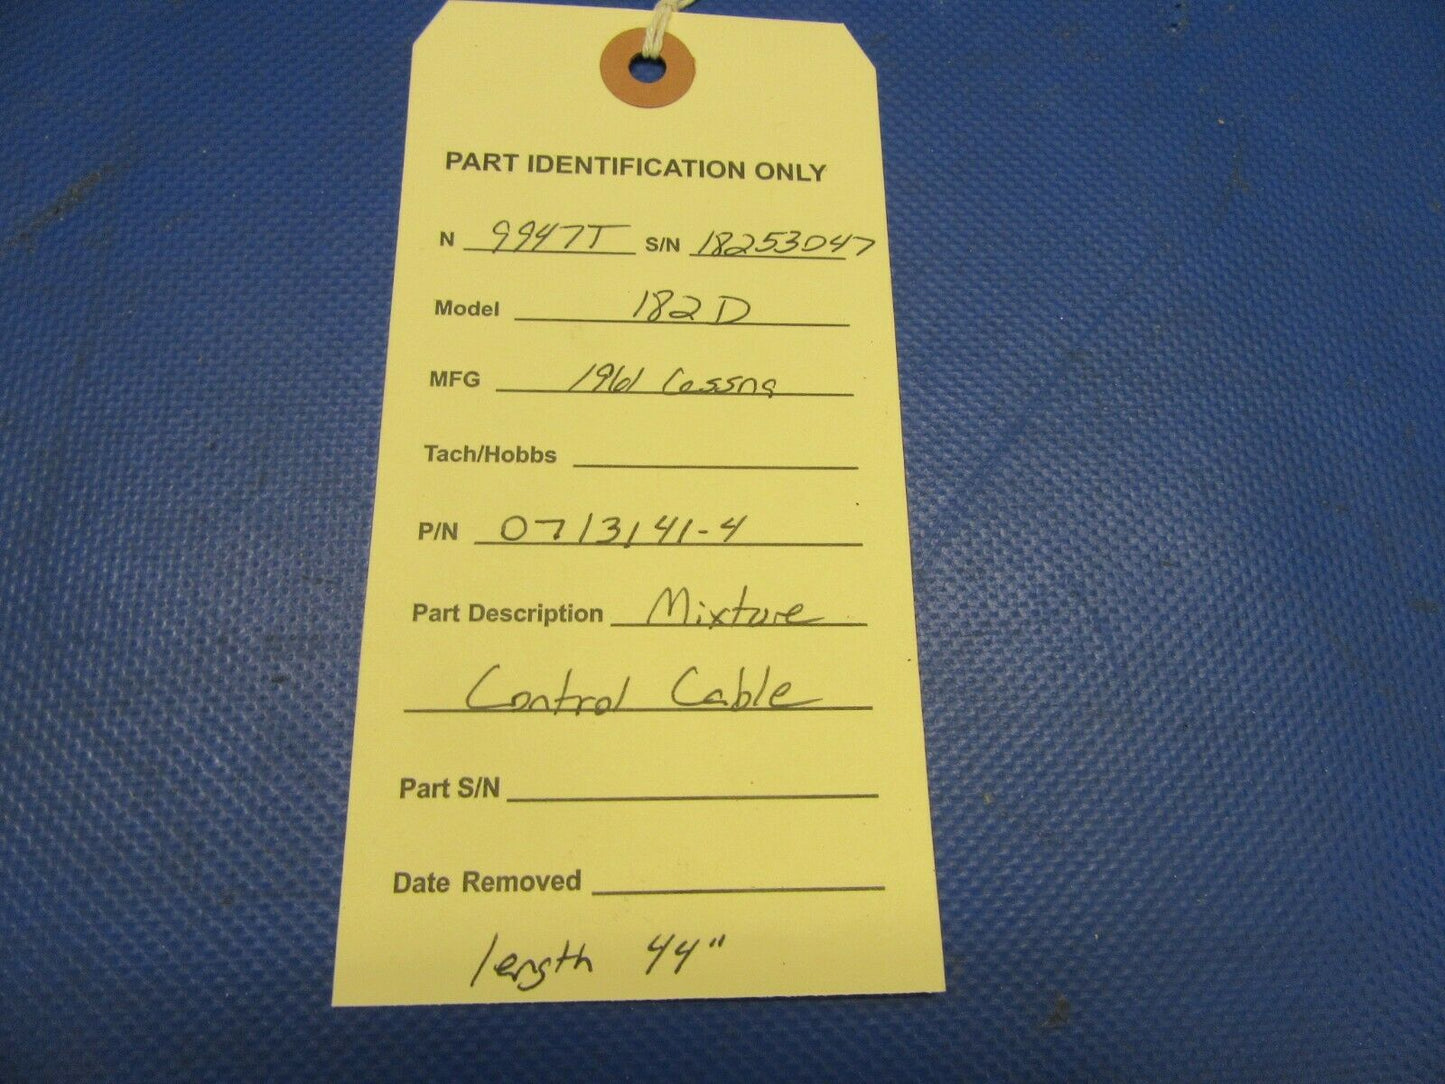 PART IDENTIFICATION ONLY
N 9947T S/N 18253047
Model 182D
MFG 1961 Cessna
Tach/Hobbs
P/N 0713141-4
Part Description Mixture
Control Cable
Part S/N
Date Removed
length 44"